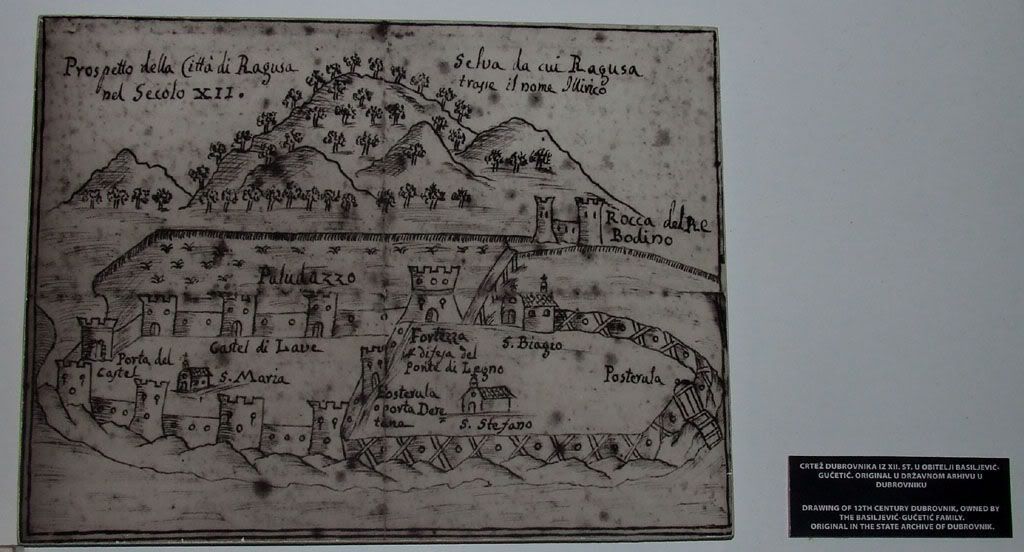 Prospetto della Città di Ragusa
nel Secolo XII.
Selva da cui Ragusa
trasse il nome Illirico
Rocca del Re
Bodino
Paludazzo
Castel di Lave
Fortezza
difesa del
Ponte di Legno
S. Biagio
Porta del
Castel
S. Maria
Posterula
Posterula
o porta Dere
tana
S. Stefano
CRTEŽ DUBROVNIKA IZ XII. ST. U OBITELJI BASILJEVIĆ-
GUČETIĆ. ORIGINAL U DRŽAVNOM ARHIVU U
DUBROVNIKU
DRAWING OF 12TH CENTURY DUBROVNIK, OWNED BY
THE BASILJEVIĆ-GUČETIĆ FAMILY.
ORIGINAL IN THE STATE ARCHIVE OF DUBROVNIK.